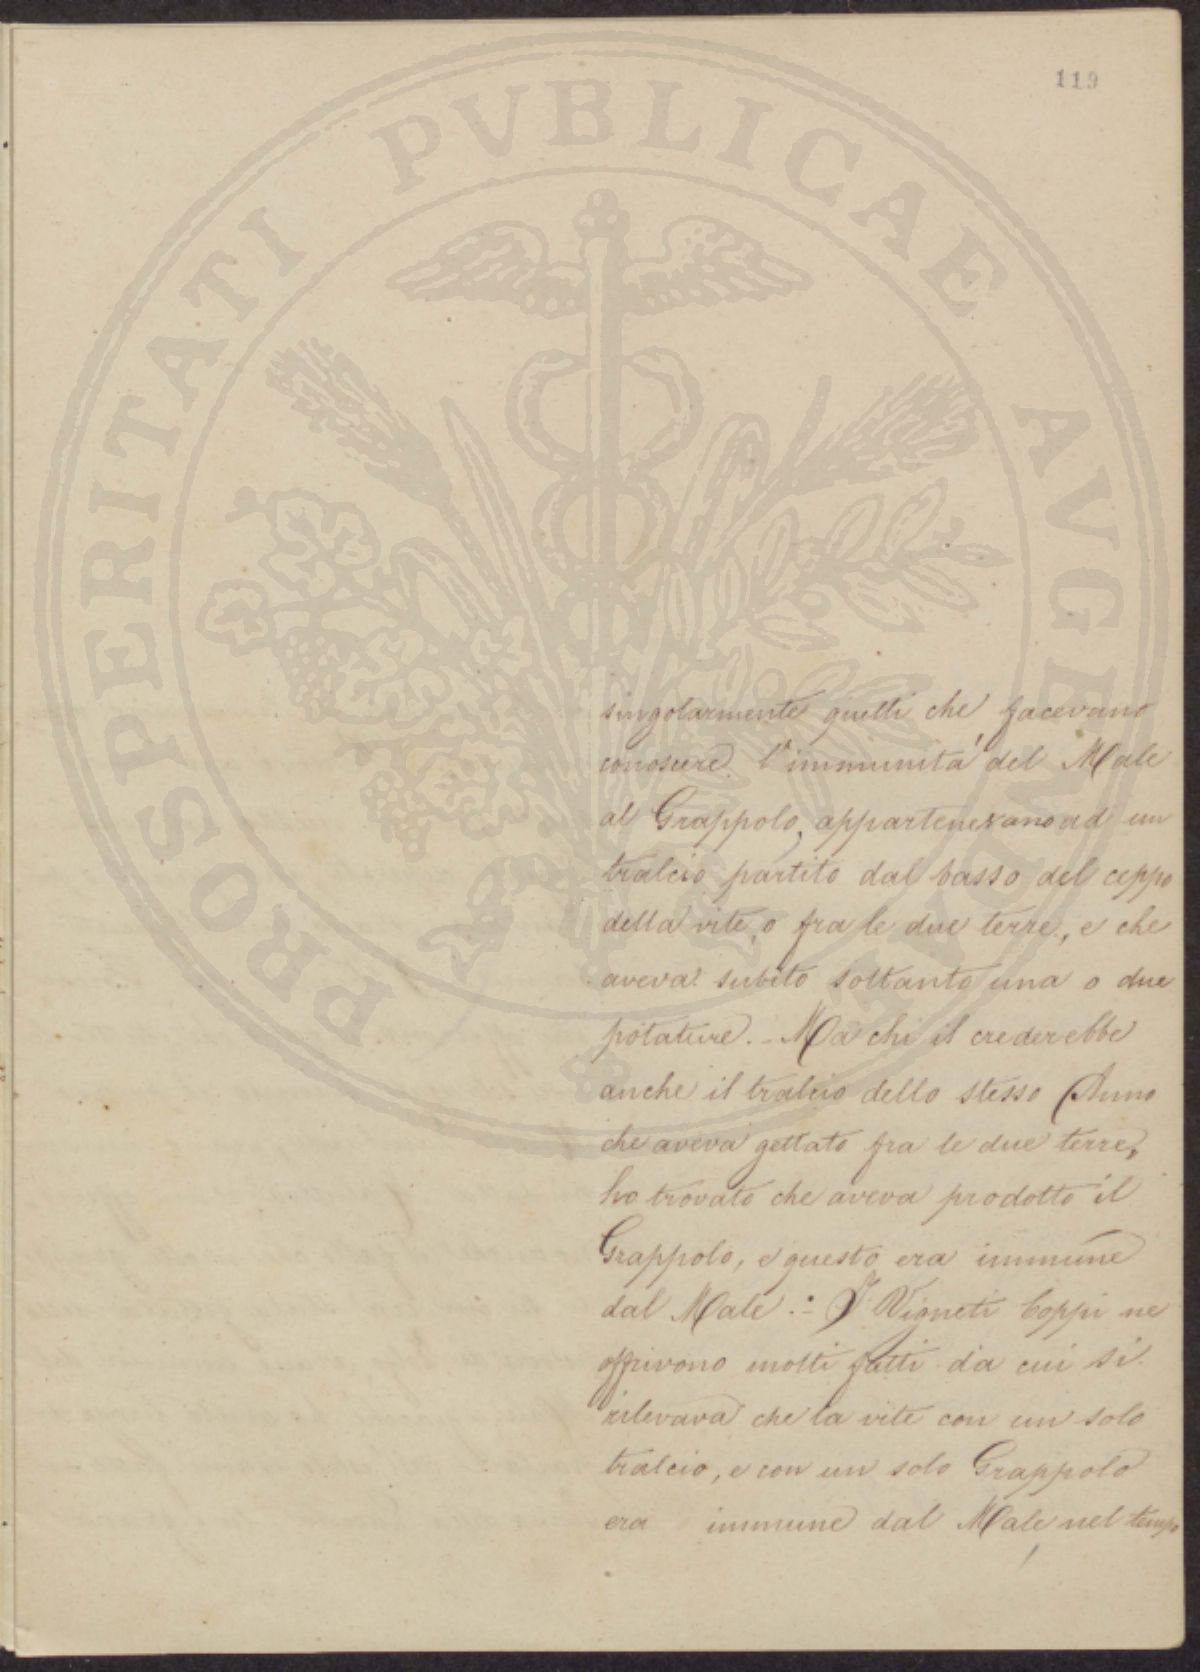 119
PROSPERITATI PVBLICAE AVGENDAE
singolarmente quelli che facevano
conoscere l'immunità del Male
al Grappolo, appartenevano ad un
tralcio partito dal basso del ceppo
della vite, o fra le due terre, e che
aveva subito soltanto una o due
potature. - Ma chi il crederebbe
anche il tralcio dello stesso Anno
che aveva gettato fra le due terre,
ho trovato che aveva prodotto il
Grappolo, e questo era immune
dal Male .:- I Vigneti Coppi ne
offrivono molti fatti da cui si
rilevava che la vite con un solo
tralcio, e con un solo Grappolo
era immune dal Male, nel tempo